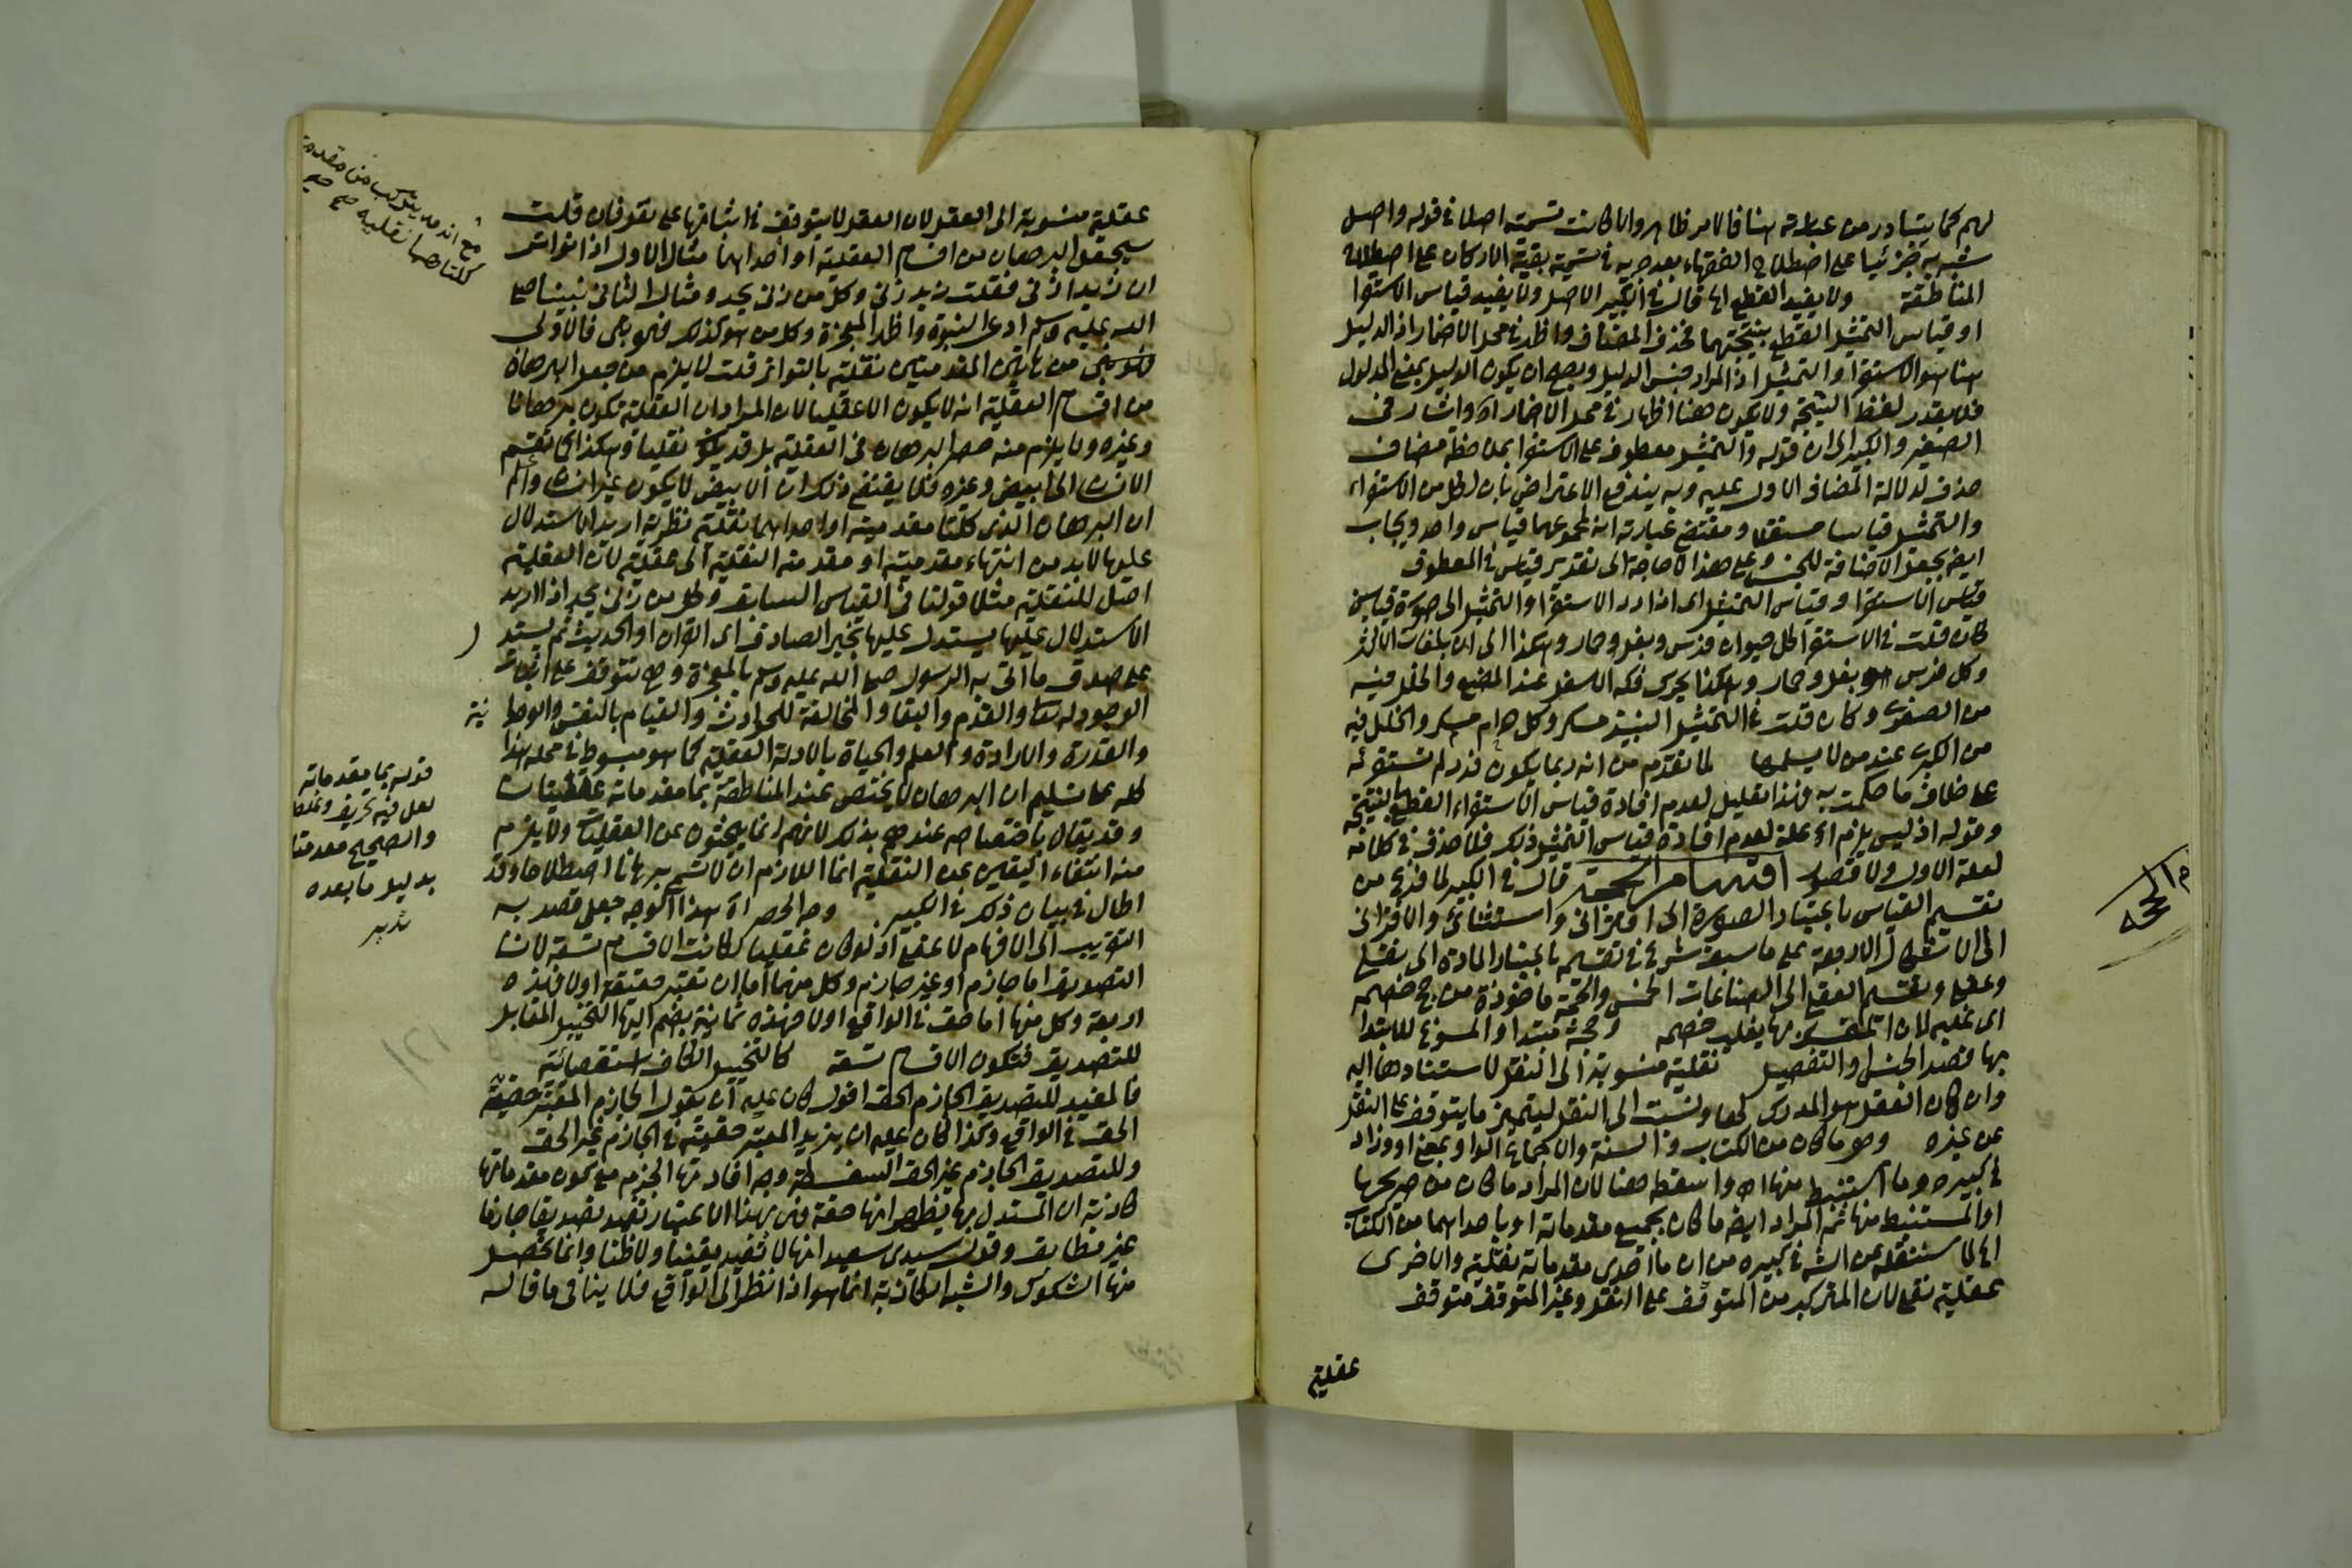 لهم كما يتبادر من عبارته هنا فالامر ظاهر والا كانت تسميته اصلا في قوله واصل
شبه به جزئيا على اصطلاح الفقهاء بعد جريه في تسمية بقية الاركان على اصطلاح
المناطقة ولا يفيد القطع اه قال في الكبير الاصل ولا يفيد قياس الاستقرا
او قياس التمثيل القطع بنتيجتهما فحذف المضاف واظهر في محل الاضمار اذ الدليل
هنا هو الاستقرا والتمثيل اذ المراد جنس الدليل ويصح ان يكون الدليل بمعنى المدلول
فلا يقدر لفظ النتيجة ولا يكون هنا اظهار في محل الاضمار اه واشار في
الصغير والكبير الى ان قوله والتمثيل معطوف على الاستقرا بملاحظة مضاف
حذف لدلالة المضاف الاول عليه وبه يندفع الاعتراض بان لكل من الاستقراء
والتمثيل قياسا مستقلا ومقتضى عبارته انه لمجموعهما قياس واحد ويجاب
ايضا بجعل الاضافة للجنس وعلى هذا لا حاجة الى تقدير قياس في المعطوف
قياس الاستقرا وقياس التمثيل اى اذا رد الاستقرا والتمثيل الى صورة قياسين
كان قلت في الاستقرا كل حيوان فرس وبغل وحمار وهكذا الى ان بلغت الاكثر
وكل فرس وبغل وحمار وهكذا يحرك فكه الاسفل عند المضغ والخلل فيه
من الصغرى وكان قلت في التمثيل النبيذ مسكر وكل مسكر حرام والخلل فيه
من الكبرى عند من لا يسلمها لما تقدم من انه ربما يكون فرد لم تستقرئه
على خلاف ما حكمت به وهذا تعليل لعدم افادة قياس الاستقراء القطع بالنتيجة
وقوله اذ ليس يلزم اه علة لعدم افادة قياس التمثيل ذلك فلا حذف في كلامه
لعلة الاول ولا قصور اقسام الحجة قال في الكبير لما فرغ من
تقسيم القياس باعتبار الصورة الى اقترانى واستثنائى والاقترانى
الى الاشكال الاربعة على ما سبق شرع في تقسيمه باعتبار المادة الى نقلى
وعقلى وتقسيم العقلى الى الصناعات الخمس والحجة ماخوذة من حج خصمه
اى غلبه لان المتمسك بها يغلب خصمه وحجة مبتدا والمسوغ للابتدا
بها قصد الجنس او التفصيل نقلية منسوبة الى النقل لاستنادها اليه
وان كان العقل هو المدرك لها ونسبت الى النقل ليتميز ما يتوقف على النقل
عن غيره وهو ما كان من الكتاب والسنة والاجماع الواو بمعنى او وزاد
في كبيره وما استنبط منها اه واسقطه هنا لان المراد ما كان من صريحها
او المستنبط منها ثم المراد ايضا ما كان بجميع مقدماته او باحداهما من الكتاب
اه لما سننقله عن الشه في كبيره من ان ما احدى مقدماته نقلية والاخرى
عقلية نقلى لان المتركب من المتوقف على النقل وغير المتوقف متوقف
عقلية
اقسام الحجة
عقلية منسوبة الى العقل لان العقل لا يتوقف في اثباتها على نقل فان قلت
سيجعل البرهان من اقسام العقلية او احداهما مثال الاول اذا تواتر
ان زيدا زنى فقلت زيد زنى وكل من زنى يحد ومثال الثانى نبينا صلى
الله عليه وسلم ادعى النبوة واظهر المعجزة وكل من هو كذلك فهو نبى فالاولى
من هاتين المقدمتين نقلية بالتواتر قلت لا يلزم من جعل البرهان
من اقسام العقلية انه لا يكون الا عقليا لان المراد ان العقلية تكون برهانا
وغيره ولا يلزم منه حصر البرهان في العقلية بل قد يكون نقليا وهكذا كما تقسم
الانسان الى ابيض وغيره فلا يقتضى ذلك ان الابيض لا يكون غير انسان واعلم
ان البرهان الذى كلتا مقدمتيه او احداهما نقلية نظرية اريد الاستدلال
عليها لا بد من انتهاء مقدمتيه او مقدمته النقلية الى عقلية لان العقلية
اصل للنقلية مثلا قولنا في القياس السابق وكل من زنى يحد اذا اريد
الاستدلال عليها يستدل عليها بخبر الصادق اى القران او الحديث ثم يستدل
على صدق ما اتى به الرسول صلى الله عليه وسلم بالمعجزة وهى تتوقف على اثبات
الوجود له تعالى والقدم والبقا والمخالفة للحوادث والقيام بالنفس والوحدانية
والقدرة والارادة والعلم والحياة بالادلة العقلية كما هو مبسوط في محله هذا
كله على تسليم ان البرهان لا يختص عند المناطقة بما مقدماته عقليتان
وقد يقال باختصاصه عندهم بذلك لانهم انما يبحثون عن العقليات ولا يلزم
منه انتفاء اليقين عن النقلية انما اللازم ان لا تسمى برهانا اصطلاحا وقد
اطال في بيان ذلك في الكبير وجه الحصر اه هذا الوجه جعلى قصد به
التقريب الى الافهام لا عقلى اذ لو كان عقليا لكانت الاقسام تسعة لان
التصديق اما جازم او غير جازم وكل منهما اما ان تعتبر حقيقته او لا فهذه
اربعة وكل منها اما حق في الواقع او لا فهذه ثمانية يضم اليها التخييل المقابل
للتصديق فتكون الاقسام تسعة كالتخييل الكاف استقصائية
فالمفيد للتصديق الجازم الحق اقول كان عليه ان يقول الجازم المعتبر حقيقة
الحق في الواقع وكذا كان عليه ان يزيد المعتبر حقيته في الجازم غير الحق
وللتصديق الجازم غير الحق السفسطة وجه افادتها الجزم مع كون مقدماتها
كاذبة ان المستدل بها يظهر انها حقة فهى بهذا الاعتبار تفيد تصديقا جازما
غير مطابق وقول سيدى سعيد انها لا تفيد يقينا ولا ظنا وانما يحصل
منها الشكوك والشبه الكاذبة انما هو اذا نظر الى الواقع فلا ينافى ما قاله
مع انه قد يتركب من مقدمتين
كلتاهما نقلية صح صح
قوله بما مقدماته
لعل فيه تحريف وغلط
والصحيح مقدمتا
بدليل ما بعده
تدبر
١٢١